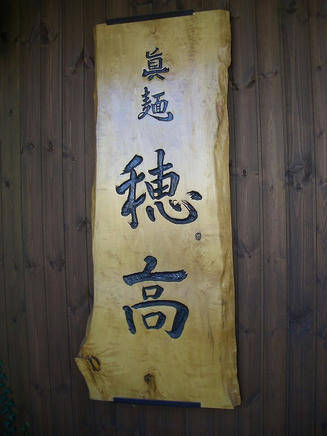 眞麺
穂高